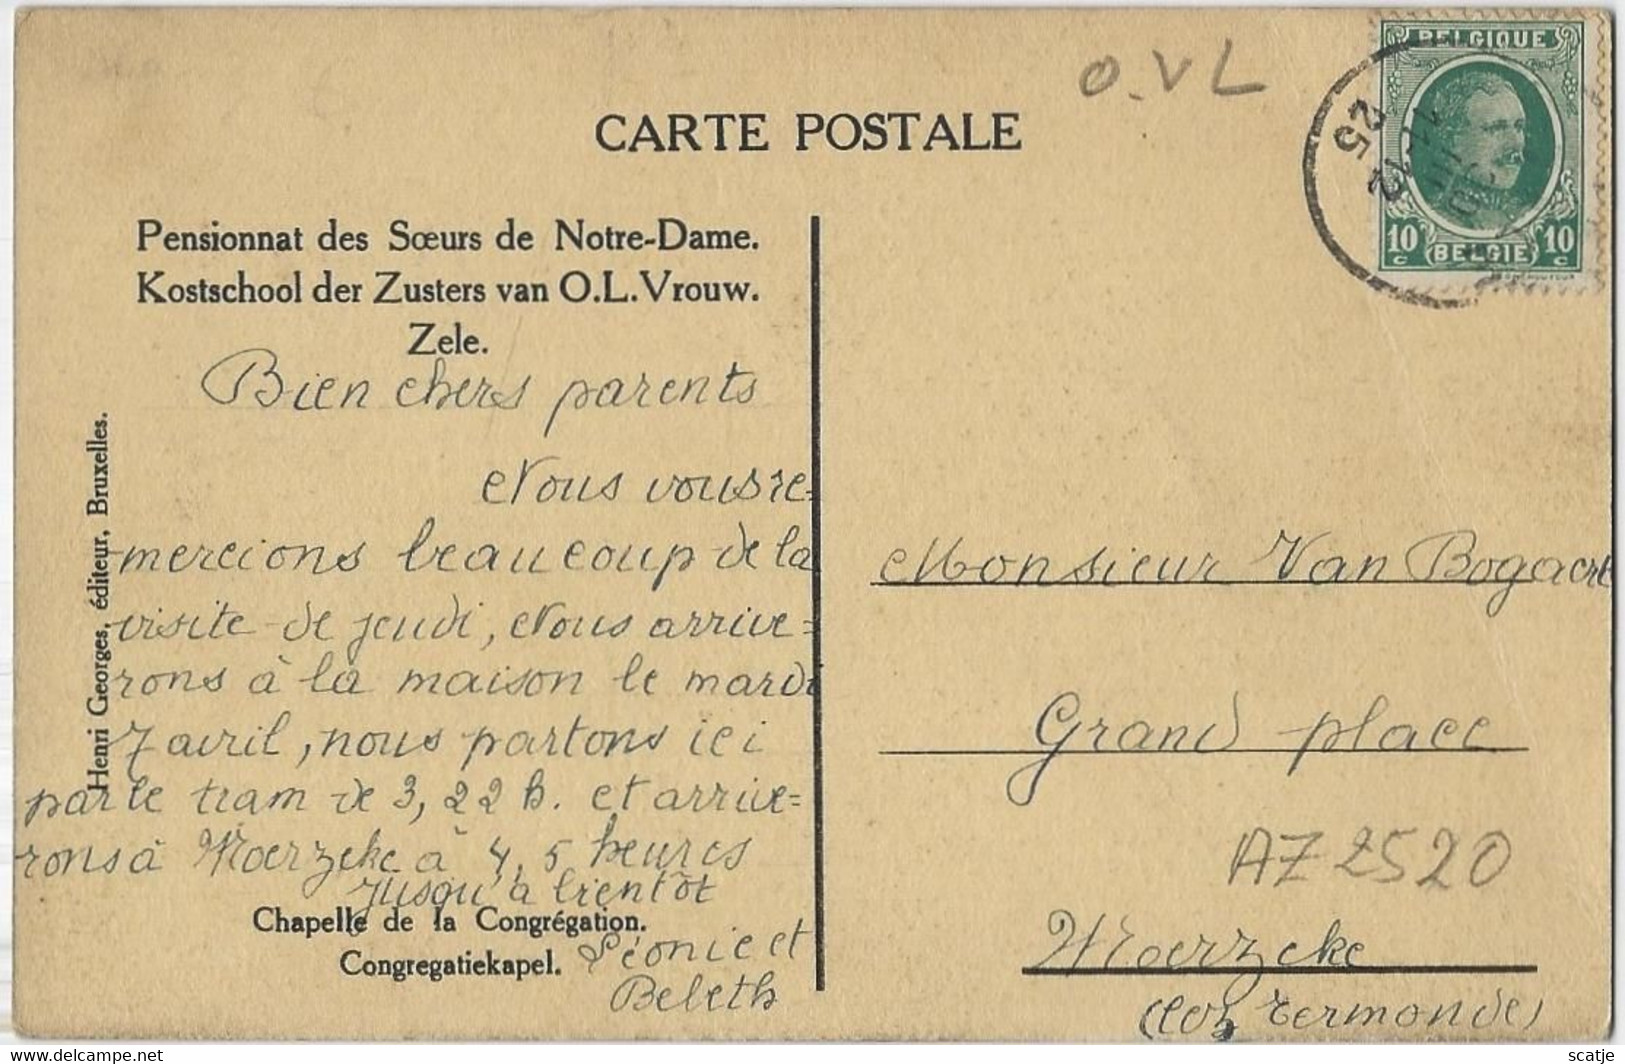 O.VL
BELGIQUE
CARTE POSTALE
25
10 c BELGIE 10 c
Pensionnat des Sœurs de Notre-Dame.
Kostschool der Zusters van O.L.Vrouw.
Zele.
Henri Georges, éditeur, Bruxelles.
Bien chers parents
Nous vous re=
mercions beaucoup de la
visite de jeudi, Nous arrive=
rons à la maison le mardi
7 avril, nous partons ici
par le tram de 3,22 h. et arrive=
rons à Moerzeke à 4,5 heures
Jusqu'à bientôt
Chapelle de la Congrégation.
Congregatiekapel.
Léonie et
Beleth
Monsieur Van Bogaert
Grand place
AZ 2520
Moerzeke
(lez Termonde)
scatje